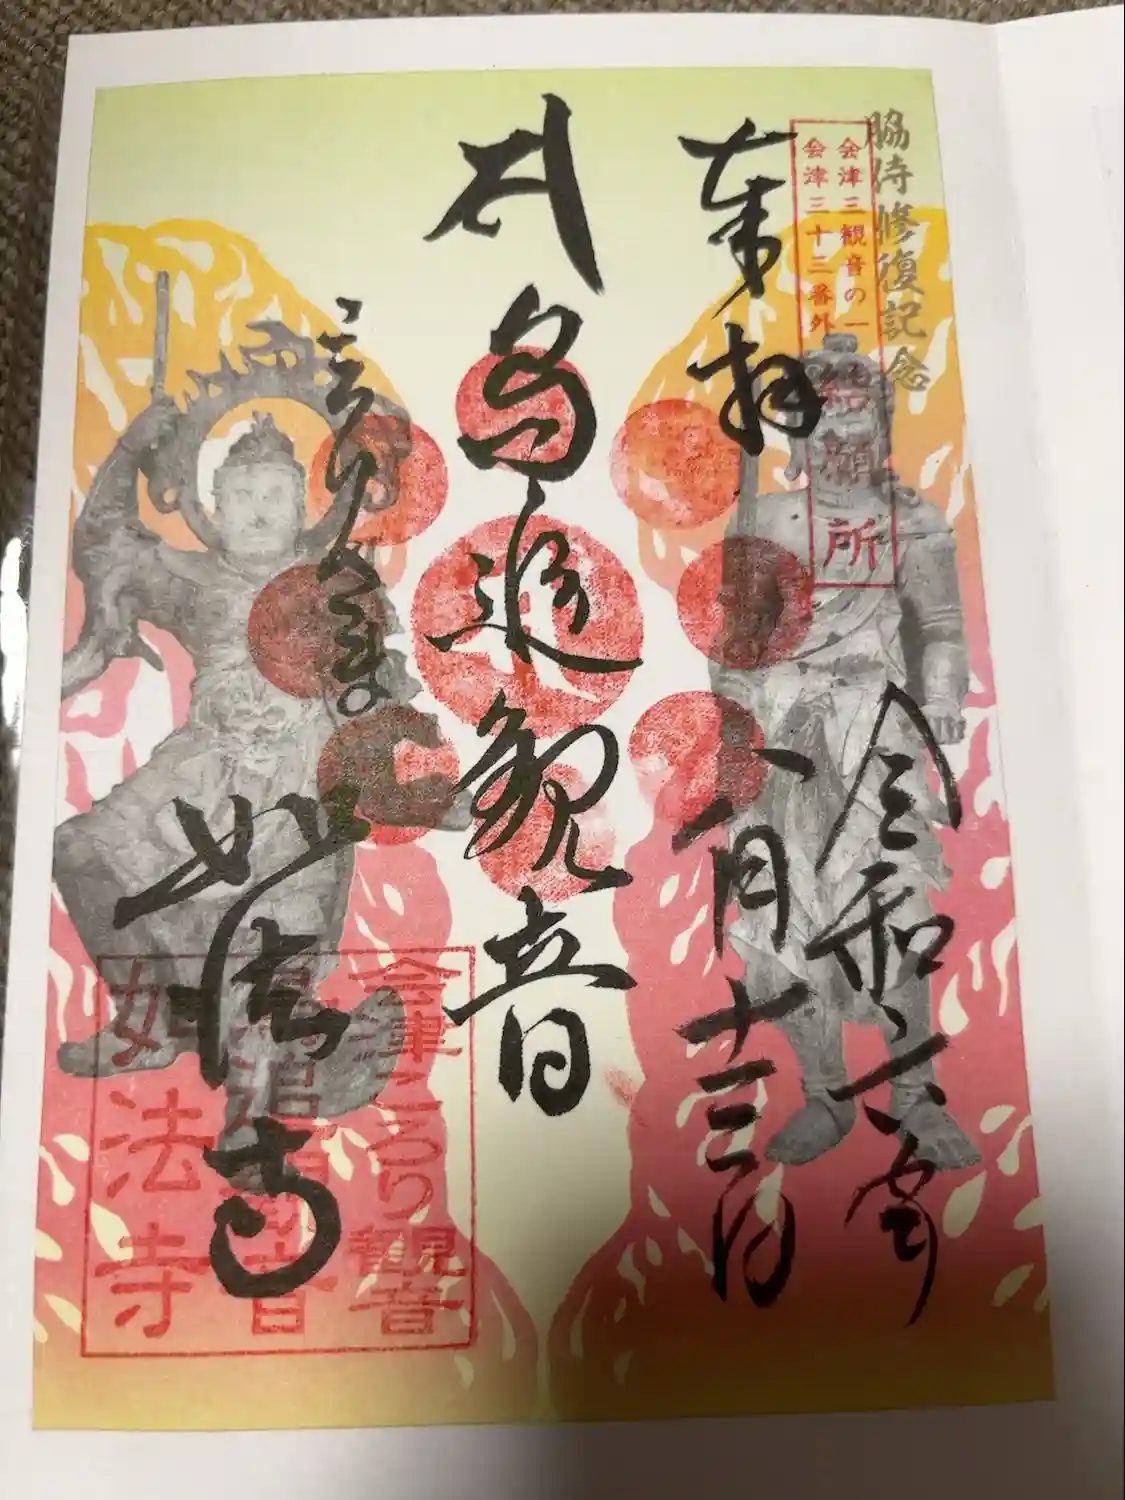 脇侍修復記念
会津三観音の一
会津三十三番外
結願所
奉拝
令和六年
八月十三日
鳥追観音
如法寺
会津ころり観音
鳥追観音
如法寺